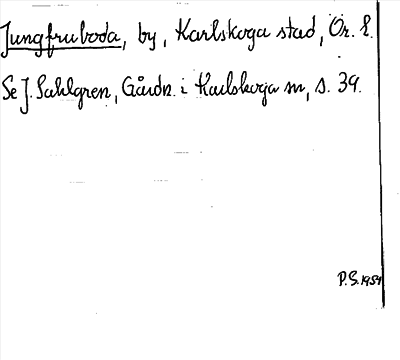 Jungfruboda, by, Karlskoga stad, Ör. l.
Se J. Sahlgren, Gårdn. i Karlskoga m, s. 39.
P.S. 1959